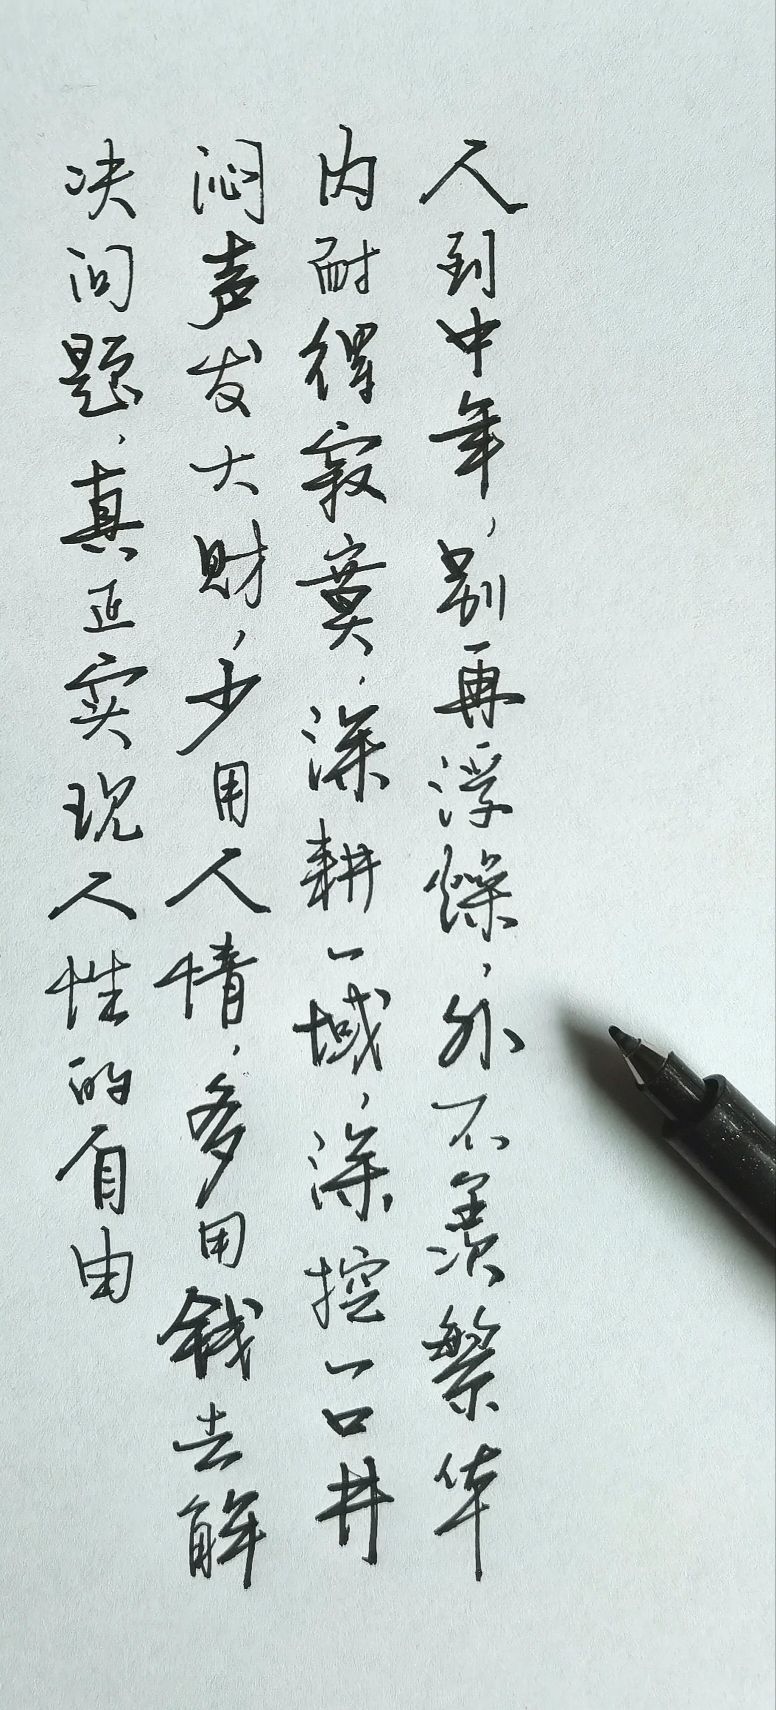 人到中年，别再浮燥，外不羡繁华
内耐得寂寞，深耕一域，深挖一口井
闷声发大财，少用人情，多用钱去解
决问题，真正实现人性的自由